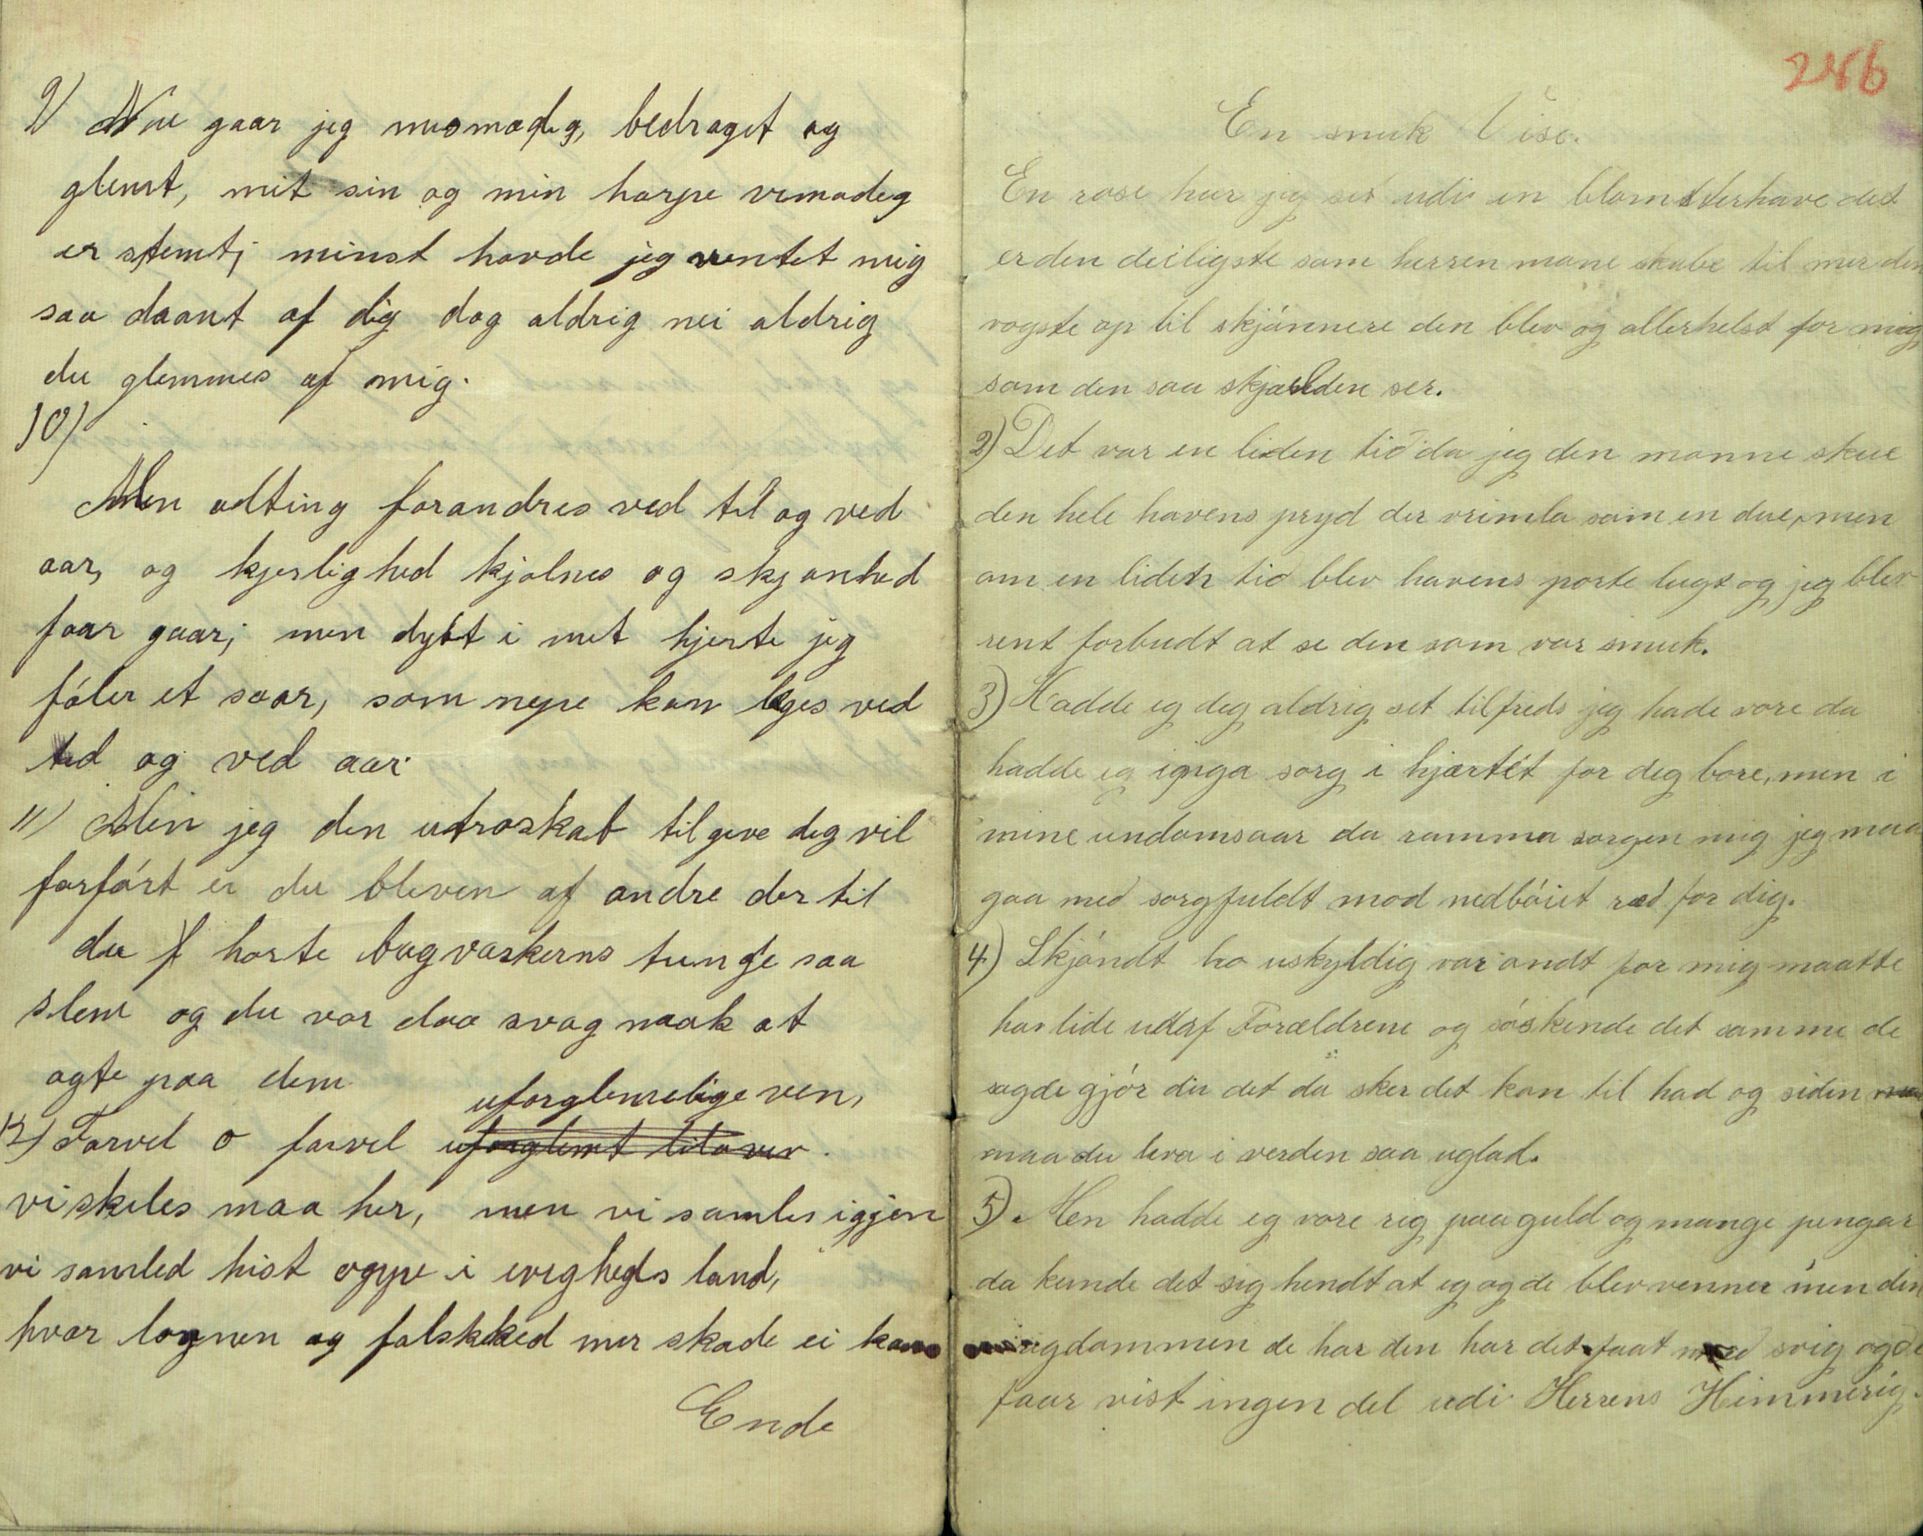 9) Nu gaar jeg mismodig, bedraget og
glemt, mit sin og min harpe vemodeg
er stemt; minst havde jeg ventet mig
saa daant af dig dog aldrig nei aldrig
du glemmes af mig.
10)
Men alting forandres ved tid og ved
aar, og kjerlighed kjølnes og skjønhed
faar gaar; men dybt i met hjerte jeg
føler et saar, som neppe kan leges ved
tid og ved aar.
11) Men jeg den utroskab tilgeve deg vil
forført er du bleven af andre der til
du hørte bagvaskerns tunge saa
slem og du var daa svag nook at
agte paa dem
uforglemelige ven,
12) Farvel o farvel
vi skiles maa her, men vi samles iggjen
vi samled hist oppe i eveghets land,
hvor løgnen og falskhed mer skade ei kan
Ende
246
En smuk Vise.
En rose har jeg set udi en blomsterhave det
er den deiligste som herren mone skabe til mer den
vogste op til skjønnere den blev og allerhelst for mig
som den saa skjælden ser.
2) Det var en liden tid da jeg den monne skue
den hele havens pryd der vrimla som en due, men
om en liden tid blev havens porte lugt og jeg blev
rent forbudt at se den som var smuk.
3) Hadde eg deg aldrig set tilfreds jeg hade vore da
hadde eg igiga sorg i hjærtet for deg bore, men i
mine undomsaar da ramma sorgen mig jeg maa
gaa med sorgfuldt mod nedbøiet ræd for dig.
4) Skjøndt ho uskyldig var ondt for mig maatte
har lide udaf Forældrene og søskende det samme de
sagde gjør du det da sker det kan til had og siden
maa du leva i verden saa uglad.
5) Men hadde eg vore rig paa guld og mange pengar
da kunde det sig hendt at eg og de blev venner men den
rigdommen de har den har det faat med svig og de
faar vist ingen del udi Herrens Himmerig.